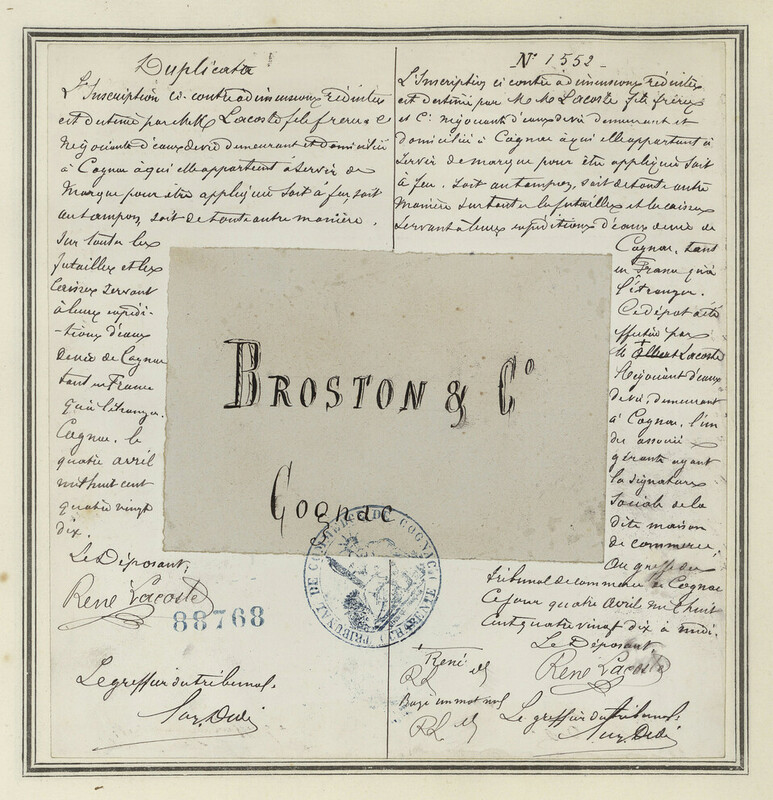 Duplicata
L'Inscription ci-contre à dimensions réduites
est destiné par MM Lacoste fils frères &
Négociants d'eaux devie demeurant et domicilié
à Cognac à qui elle appartient à servir de
Marque pour être appliqué soit à feu, soit
au tampon, soit de toute autre manière.
Sur toutes les
futailles et les
caisses servant
à leurs expédi-
-tions d'eaux
devie de Cognac
tant en France
qu'à l'étranger.
Cognac, le
quatre avril
mil huit cent
quatre vingt
dix.
Le Déposant,
René Lacoste
88768
Le greffier du tribunal,
N° 1552 -
L'Inscription ci contre à dimensions réduites
est destiné par M M Lacoste fils frères
et Cie négociant d'eaux devie demeurant et
domicilié à Cognac à qui elle appartient à
servir de marque pour être appliqué soit
à feu, soit au tampon, soit de toute autre
Manière sur toutes les futailles et les caisses
servant à leurs expéditions d'eaux devie de
Cognac, tant
en France qu'à
l'étranger.
Ce dépôt a été
effectué par
M Albert Lacoste
Négociant d'eaux
devie, demeurant
à Cognac, l'un
des associés
gérants ayant
la signature
Sociale de la
dite maison
de commerce,
Au greffe du
tribunal de commerce de Cognac
Ce jour quatre Avril mil huit
cent quatre vingt dix à midi.
Le Déposant,
René Lacoste
+ René
RL
Rayé un mot nul
RL
Le greffier du tribunal,
BROSTON & C°
Cognac
TRIBUNAL DE COMMERCE DE COGNAC (CHARENTE)